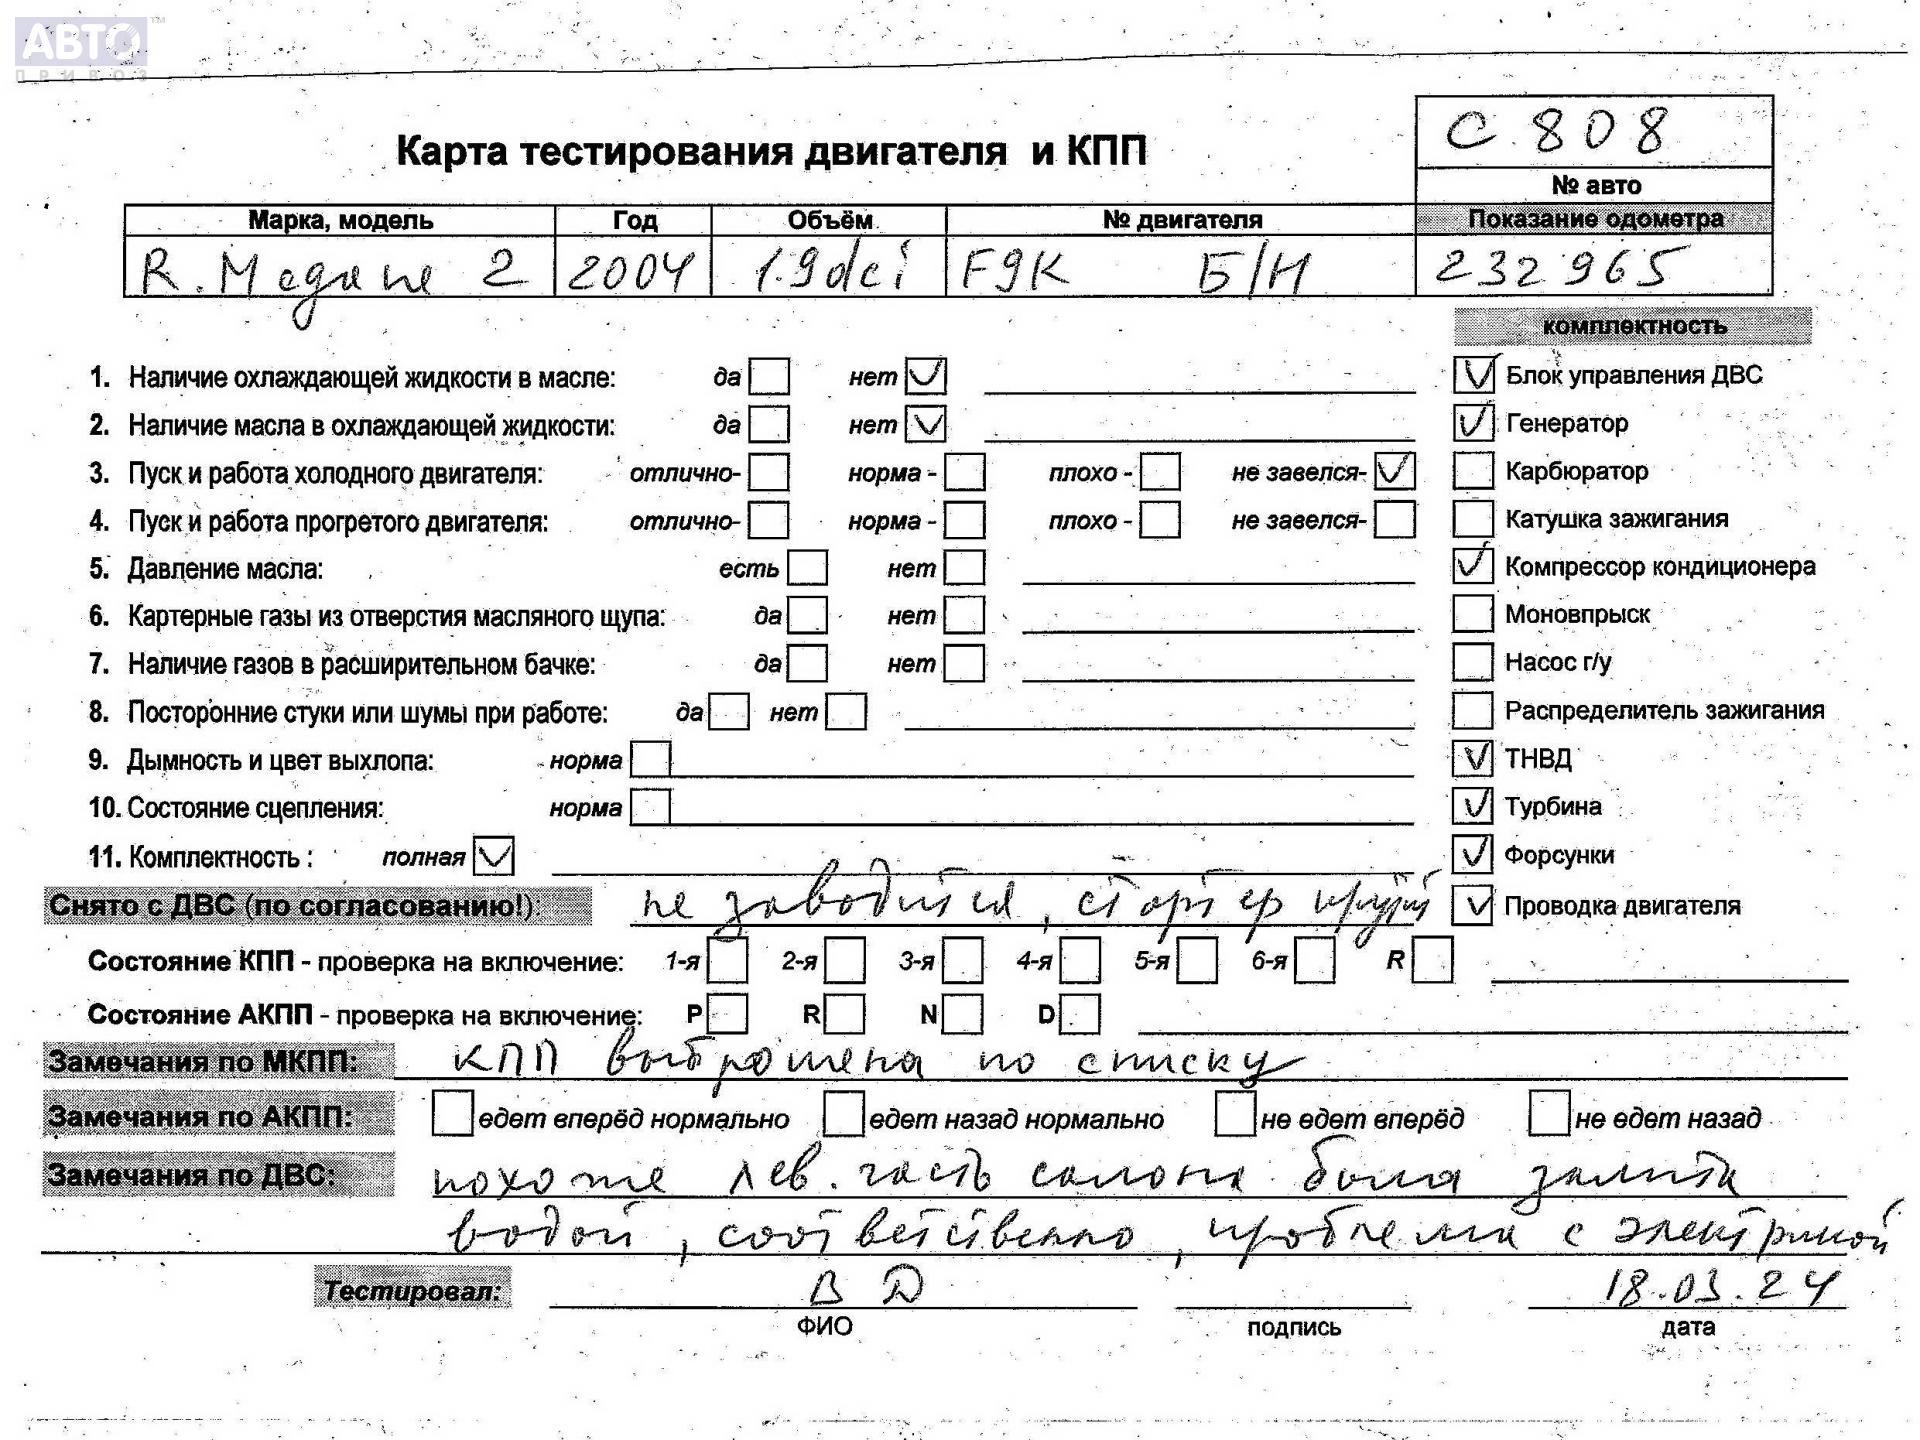 АВТО ТМ
ПРИВОЗ
С 808
Карта тестирования двигателя и КПП
№ авто
Марка, модель Год Объём № двигателя Показание одометра
R. Megane 2 2004 1.9dci F9K Б/Н 232965
комплектность
1. Наличие охлаждающей жидкости в масле: да нет Блок управления ДВС
2. Наличие масла в охлаждающей жидкости: да нет Генератор
3. Пуск и работа холодного двигателя: отлично- норма - плохо - не завелся- Карбюратор
4. Пуск и работа прогретого двигателя: отлично- норма - плохо - не завелся- Катушка зажигания
5. Давление масла: есть нет Компрессор кондиционера
6. Картерные газы из отверстия масляного щупа: да нет Моновпрыск
7. Наличие газов в расширительном бачке: да нет Насос г/у
8. Посторонние стуки или шумы при работе: да нет Распределитель зажигания
9. Дымность и цвет выхлопа: норма ТНВД
10. Состояние сцепления: норма Турбина
11. Комплектность : полная Форсунки
Снято с ДВС (по согласованию!): не заводится, стартер крутит Проводка двигателя
Состояние КПП - проверка на включение: 1-я 2-я 3-я 4-я 5-я 6-я R
Состояние АКПП - проверка на включение: P R N D
Замечания по МКПП: КПП выброшена по списку
Замечания по АКПП: едет вперёд нормально едет назад нормально не едет вперёд не едет назад
Замечания по ДВС: похоже лев. часть салона была залита
водой, соответственно, проблема с электрикой
Тестировал: ВД 18.03.24
ФИО подпись дата